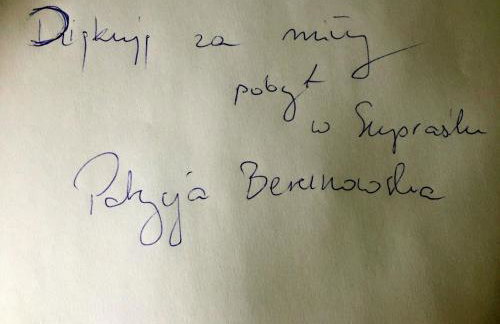 Dziękuję za miły
pobyt
w Supraślu
Patrycja Bereznowska